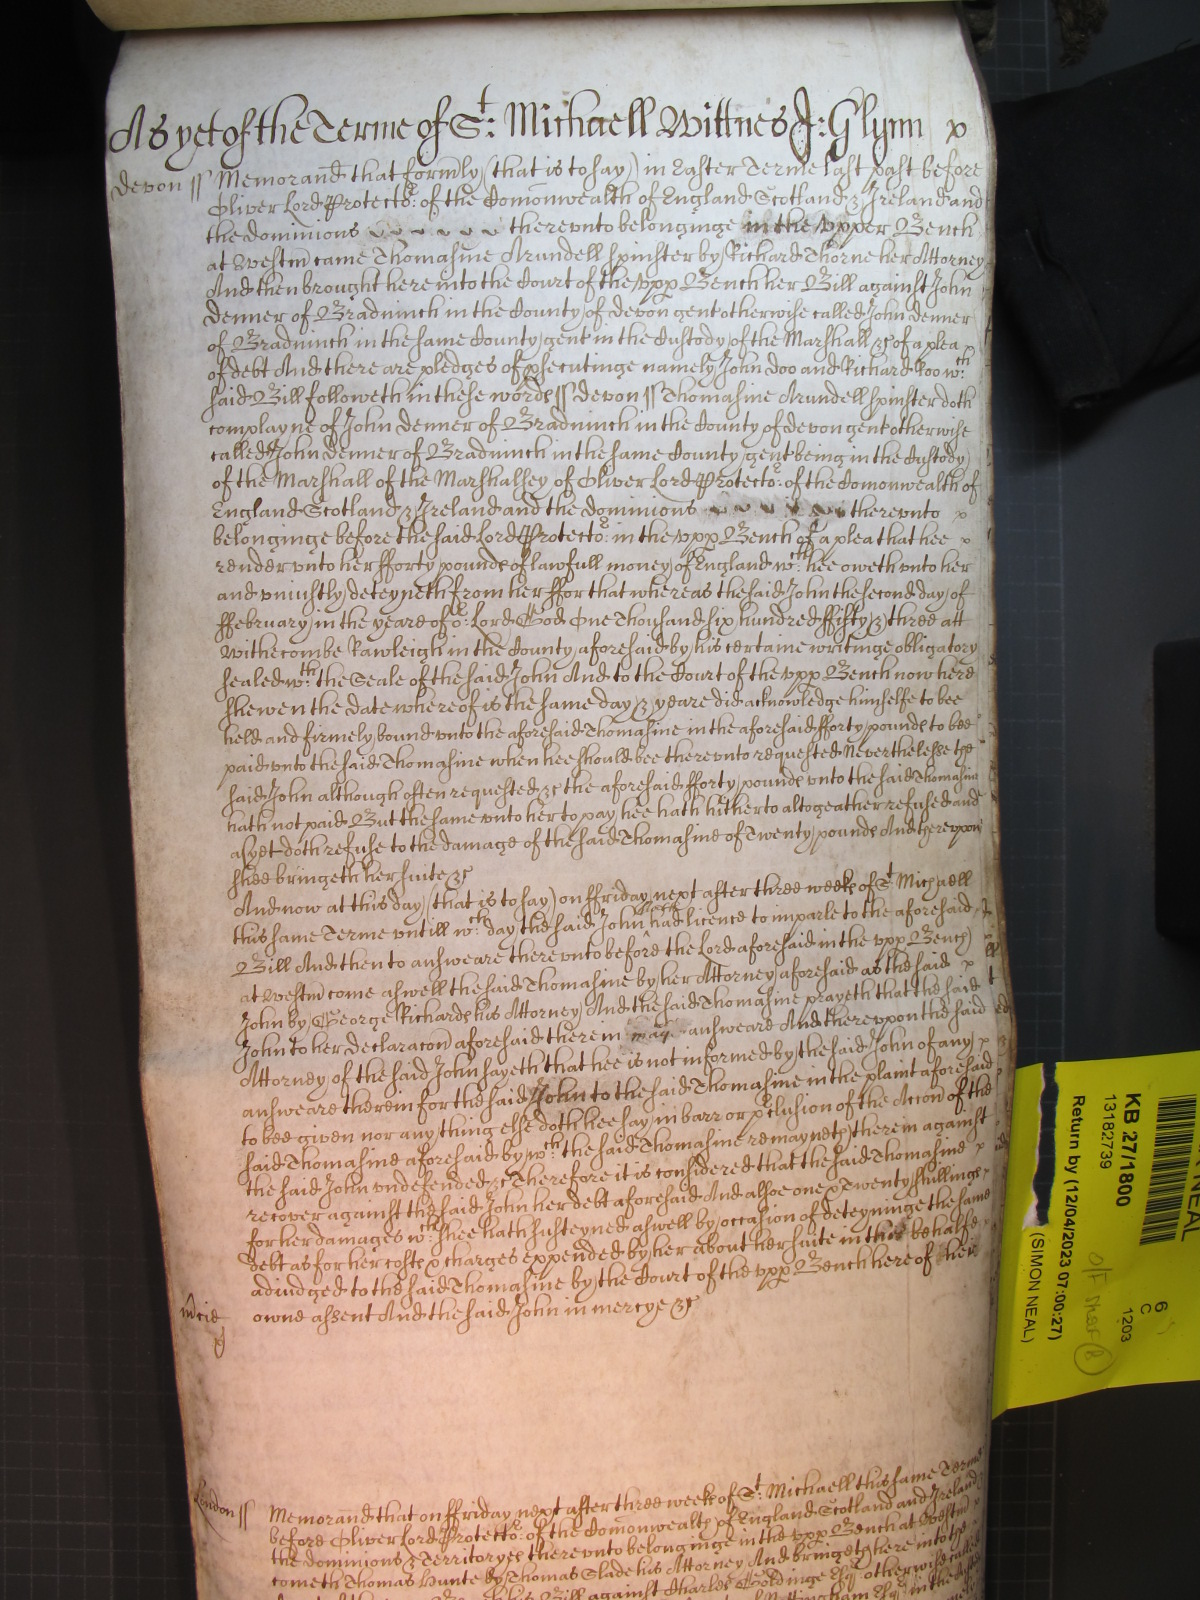 As yet of the Terme of St: Michaell Wittnes J: Glynn
Devon ss Memorand that formly (that is to say) in Easter Terme last past before
Oliver Lord Protector: of the Comonwealth of England Scotland & Ireland and
the dominions thereunto belonginge in the upper Bench
at Westm came Thomasine Arundell Spinster by Richard Thorne her Attorney
And then brought here into the Court of the upp Bench her Bill against John
Denner of Bradninch in the County of Devon gent otherwise called John Denner
of Bradninch in the same County gent in the Custody of the Marshall &c of a plea
of debt And there are pledges of psecutinge namely John Doo and Richard Roo wch:
said Bill followeth in these words ss Devon ss Thomasine Arundell Spinster doth
complayne of John Denner of Bradninch in the County of Devon gent otherwise
called John Denner of Bradninch in the same County gent being in the Custody
of the Marshall of the Marshalsey of Oliver Lord Protector: of the Comonwealth of
England Scotland & Ireland and the dominions thereunto
belonginge before the said Lord Protector: in the upp Bench of a plea that hee
render unto her fforty pounds of lawfull money of England wch: hee oweth unto her
and uniustly deteyneth from her ffor that whereas the said John the second day of
ffebruary in the yeare of or: Lord God One Thousand six hundred ffifty & three att
Withecombe Rawleigh in the County aforesaid by his certaine writinge obligatory
sealed wth: the Seale of the said John And to the Court of the upp Bench now here
shewen the date whereof is the same day & yeare did acknowledge himselfe to bee
held and firmely bound unto the aforesaid Thomasine in the aforesaid fforty pounds to bee
paid unto the said Thomasine when hee should bee thereunto requested Neverthelesse the
said John although often requested &c the aforesaid fforty pounds unto the said Thomasine
hath not paid But the same unto her to pay hee hath hitherto altogeather refused and
as yet doth refuse to the damage of the said Thomasine of Twenty pounds And thereupon
shee bringeth her suite &c
And now at this day (that is to say) on ffriday next after three weeks of St Michaell
this same Terme untill wch: day the said John had licence to imparle to the aforesaid
Bill And then to answeare thereunto before the Lord aforesaid in the upp Bench
at Westm come aswell the said Thomasine by her Attorney aforesaid as the said
John by George Richards his Attorney And the said Thomasine prayeth that the said
John to her declaracon aforesaid therein may answeare And thereuppon the said
Attorney of the said John sayeth that hee is not informed by the said John of any
answeare therein for the said John to the said Thomasine in the plaint aforesaid
to bee given nor any thing else doth hee say in barr or pclusion of the Accon of the
said Thomasine aforesaid by wch: the said Thomasine remayneth therein against
the said John undefended &c Therefore it is considered that the said Thomasine
recover against the said John her debt aforesaid And alsoe one & Twenty shillings
for her damages wch: shee hath susteyned aswell by occasion of deteyninge the same
debt as for her costs & charges expended by her about her suite in this behalfe
adiudged to the said Thomasine by the Court of the upp Bench here of their
mcie owne assent And the said John in mercye &c
London ss Memorand that on ffriday next after three weeks of St: Michaell this same Terme
before Oliver Lord Protector: of the Comonwealth of England Scotland and Ireland
the dominions & Territoryes thereunto belonginge in the upp Bench at Westm
cometh Thomas Hunte by Thomas Slade his Attorney And bringeth here into the
Bill against Charles Goldinge Esqr otherwise called
KB 27/1800
13182739
Return by (12/04/2023 07:00:27)
(SIMON NEAL)
6
C
1203
NEAL